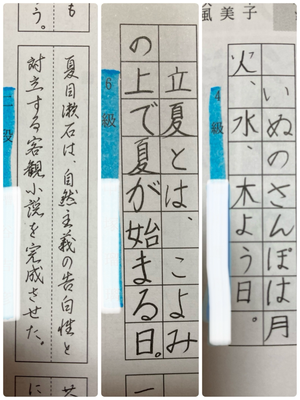 も
う。
二段
夏目漱石は、自然主義の告白性と
対立する客観小説を完成させた。
6級
立夏とは、こよみ
の上で夏が始まる日。
一
美子
4級
いぬのさんぽは月
火、水、木よう日。